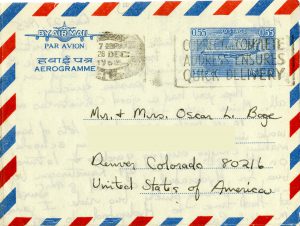 BY AIR MAIL
PAR AVION
हवाई पत्र
AEROGRAMME
0.55
0.55
DEC
CORRECT COMPLETE
ADDRESS ENSURES
QUICK DELIVERY
Mr. + Mrs. Oscar L. Boge
Denver Colorado 80216
United States of America